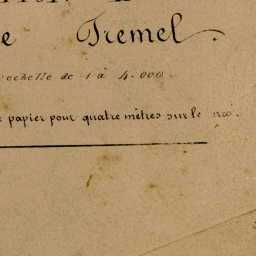 e Tremel.
echelle de 1 à 4.000
papier pour quatre mètres sur le